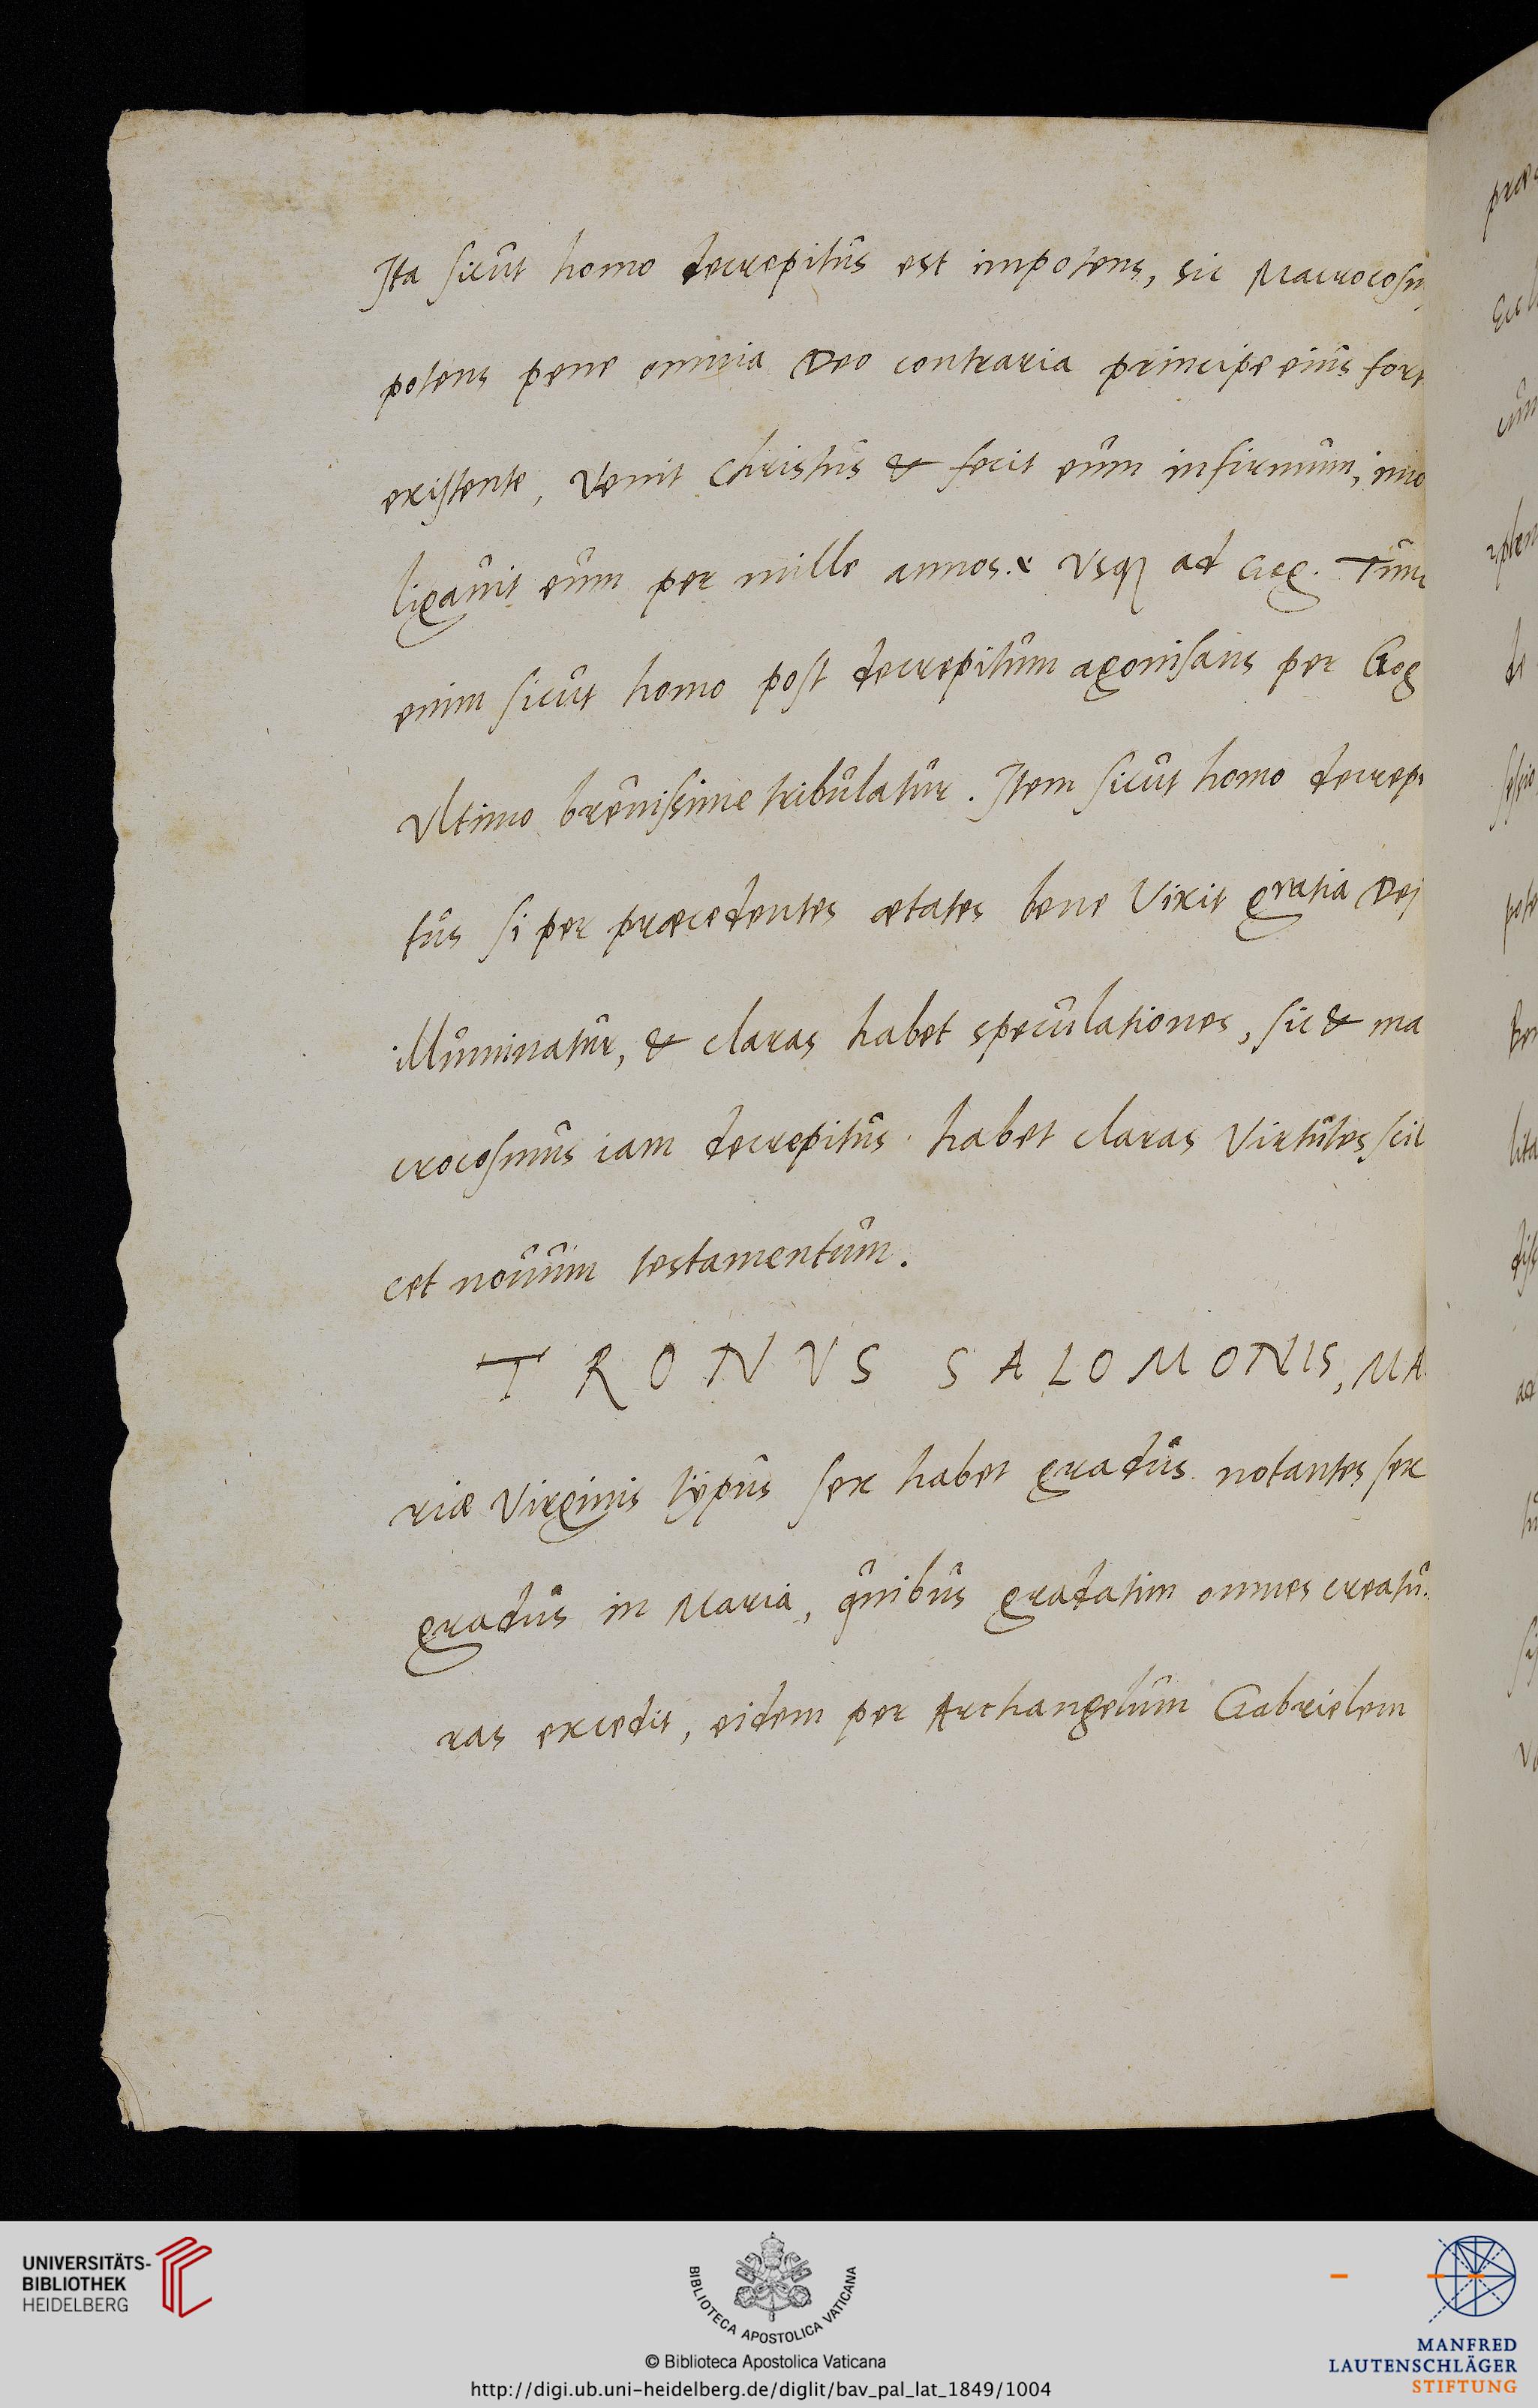 Ita sicut homo decrepitus est impotens, sic Macrocosm
potens pene omnia Deo contraria principe eius fort
existente, venit Christus & fecit eum infirmum, imo
ligauit eum per mille annos. & vsq ad Gog. Tunc
enim sicut homo post decrepitum agonisans per Gog
vltimo breuissime tribulatur. Item sicut homo decrepi
tus si per præcedentes ætates bene vixit gratia Dei
illuminatur, & claras habet speculationes, sic & ma
crocosmus iam decrepitus habet claras virtutes scil
cet nouum testamentum.
TRONVS SALOMONIS, MA
riæ Virginis typus sex habet gradus notantes sex
gradus in Maria, quibus gradatim omnes creatu
ras excedit, eidem per Archangelum Gabrielem
UNIVERSITÄTS-
BIBLIOTHEK
HEIDELBERG
BIBLIOTECA APOSTOLICA VATICANA
© Biblioteca Apostolica Vaticana
http://digi.ub.uni-heidelberg.de/diglit/bav_pal_lat_1849/1004
MANFRED
LAUTENSCHLÄGER
STIFTUNG